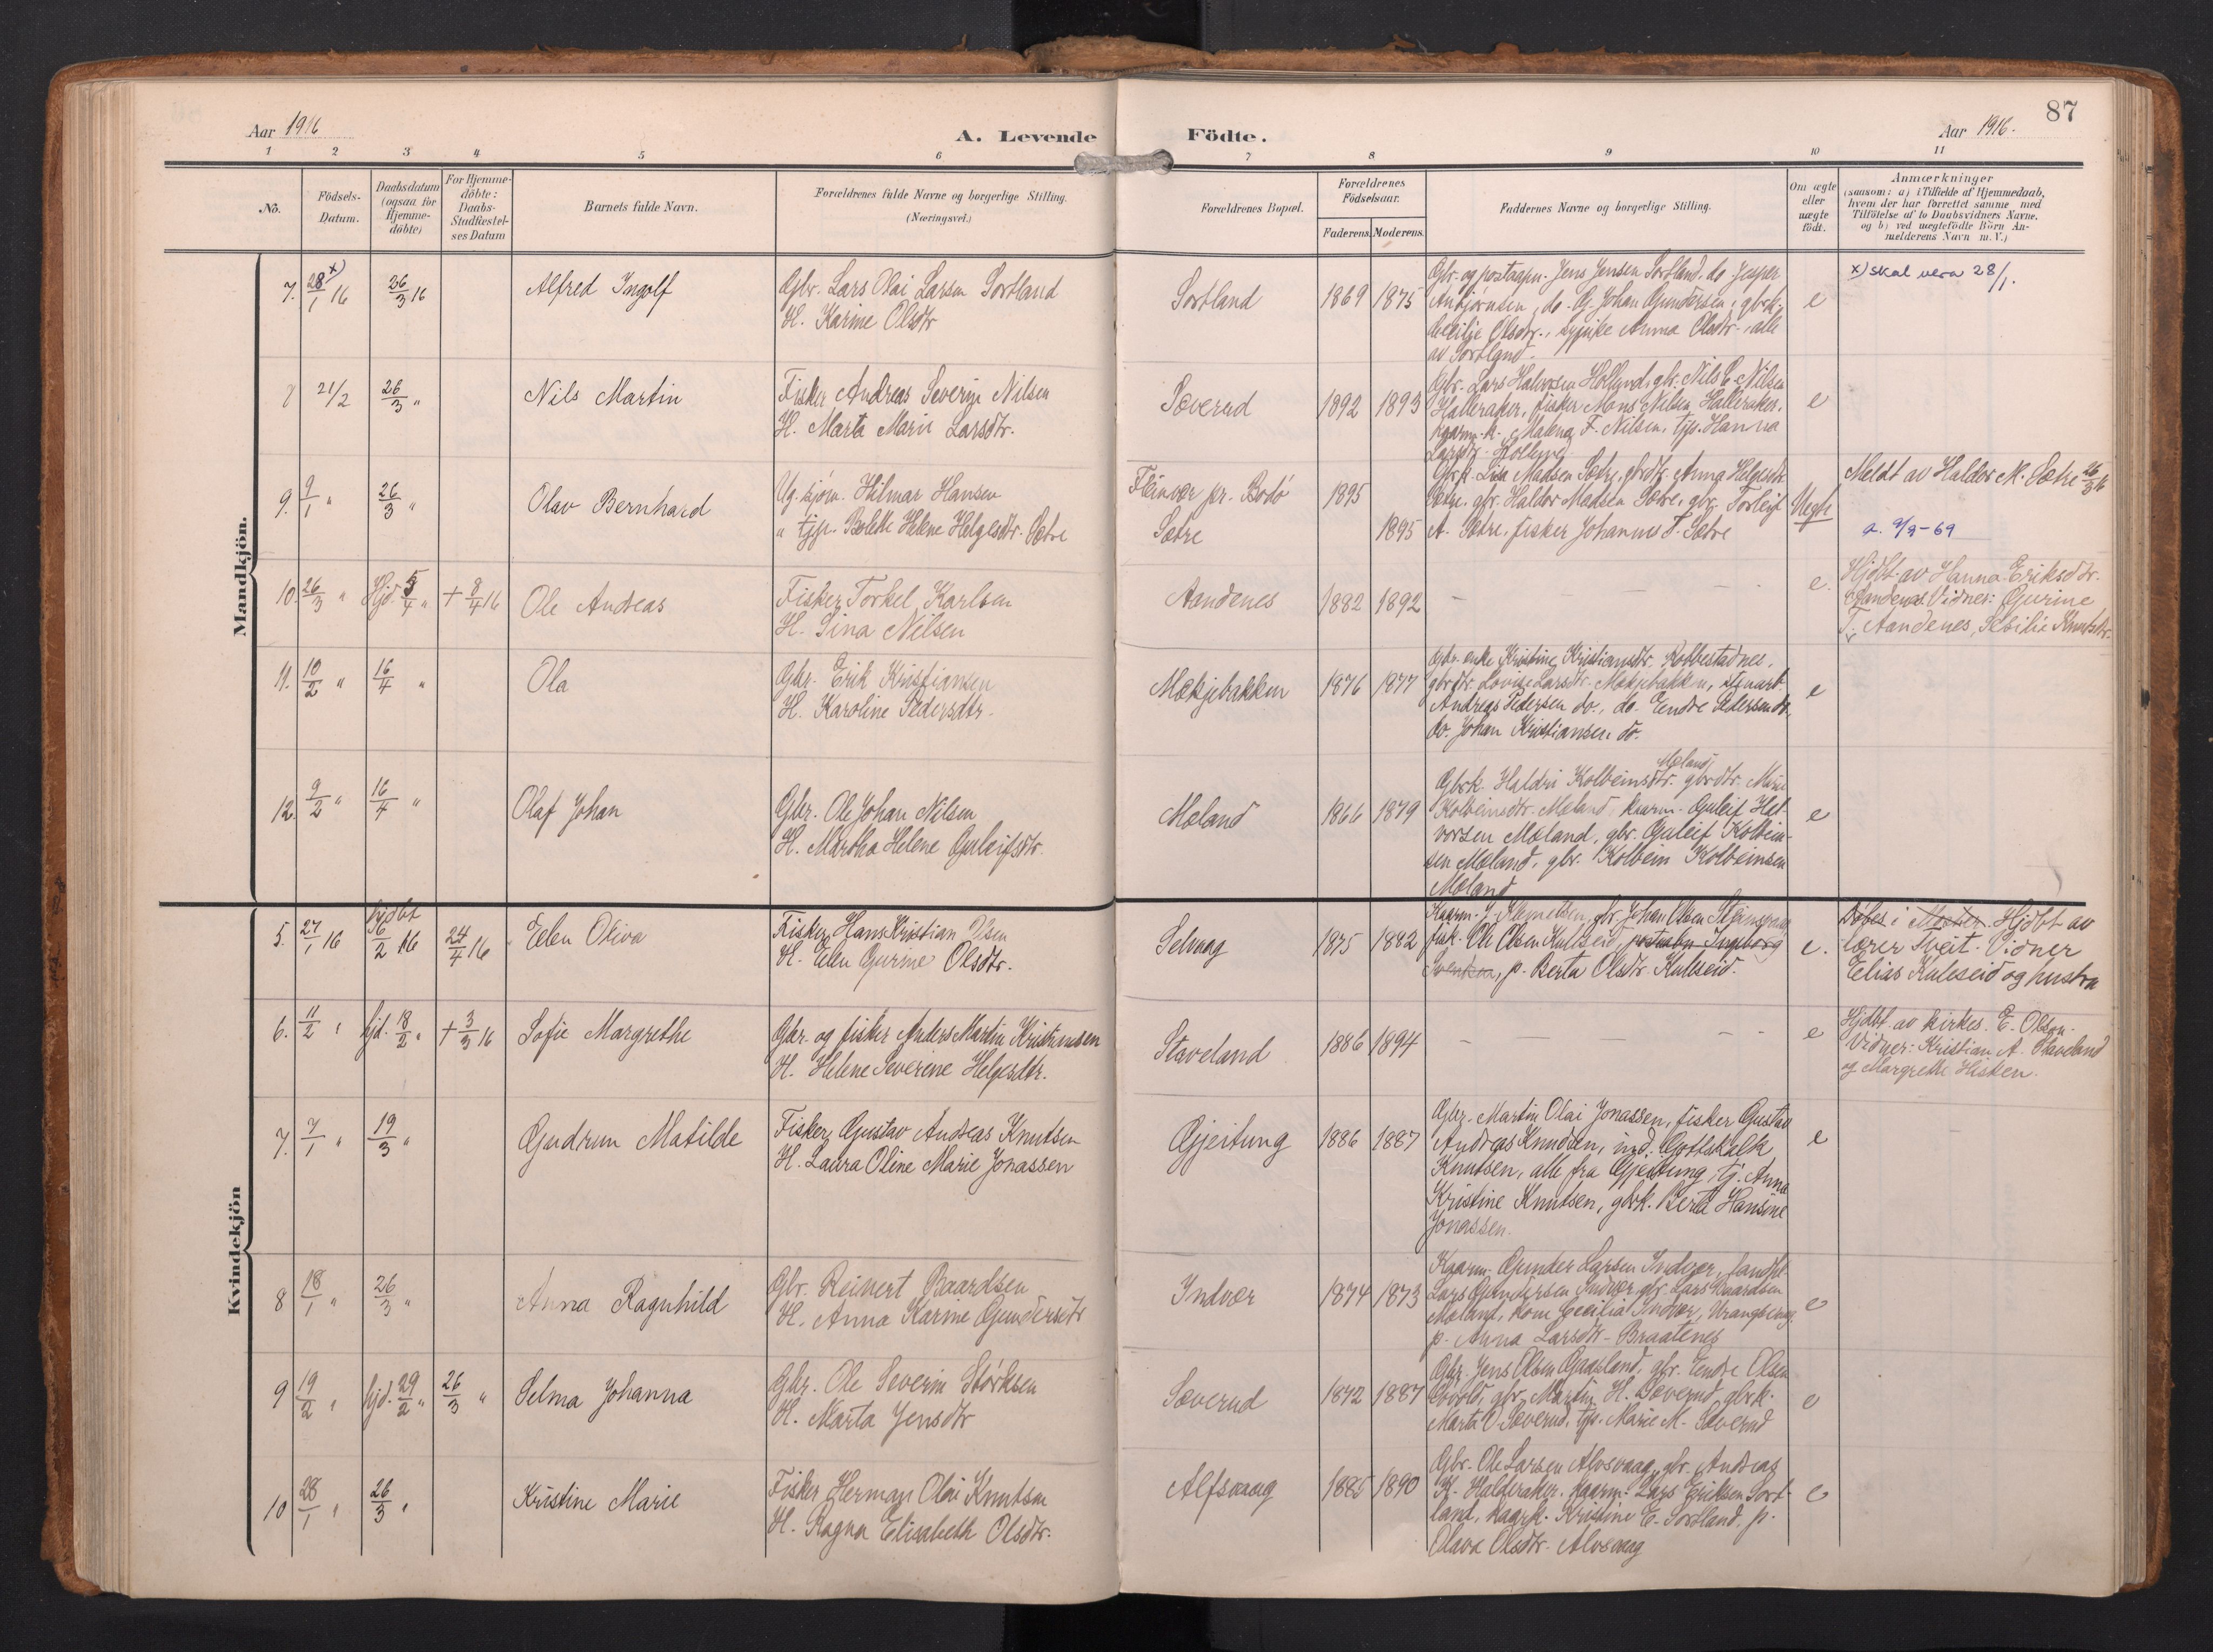 87
Aar 1916
A. Levende Födte.
Aar 1916.
1 2 3 4 5 6 7 8 9 10 11
No.
Födsels-
Datum.
Daabsdatum
(ogsaa for
Hjemme-
döbte)
For Hjemme-
döbte:
Daabs-
Stadfæstel-
ses Datum
Barnets fulde Navn.
Forældrenes fulde Navne og borgerlige Stilling.
(Næringsvei.)
Forældrenes Bopæl.
Forældrenes
Födselsaar.
Faderens. Moderens.
Faddernes Navne og borgerlige Stilling.
Om ægte
eller
uægte
födt.
Anmærkninger
(saasom: a) i Tilfælde af Hjemmedaab,
hvem der har forrettet samme med
Tilföielse af to Daabsvidners Navne,
og b) ved uægtefödte Börn An-
melderens Navn m. V.)
Mandkjön.
7. 28/1 16 x) 26/3 16 Alfred Ingolf
Gbr. Lars Olai Larsen Sortland
H. Karine Olsdtr
Sortland 1869 1875
Gbr. og postaapn. Jens Jensen Sortland, do. Jesper
Anbjørnsen, do. G. Johan Gundersen, gbrk.
Cecilje Olsdtr., sypike Anna Olsdtr., alle
av Sortland.
e
x) skal vera 28/1.
8 21/2 26/3 " Nils Martin
Fisker Andreas Severin Nilsen
H. Marta Marie Larsdtr.
Sæverud 1892 1893
Gbr. Lars Halvorsen Hollund, gbr. Nils E. Nilsen
Halleraker, fisker Mons Nilsen Halleraker,
Malena F. Nilsen, tjp. Hanna
Larsdtr.
e
9. 9/1 " 26/3 " Olav Bernhard
Ug. sjøm. Hilmar Hansen
" tjp. Bolette Helene Helgesdtr. Sætre
Fleinvær pr. Bodö 1895
Sætre 1895
Gbrk. Lisa Madsen Sætre, gbrdtr. Anna Helgesdtr.
Sætre, gbr. Haldor Madsen Sætre, gbr. Torleif
A. Sætre, fisker Johannes T. Sætre
Uegte
Meldt av Haldor M. Sætre 26/3 16
a. 9/9-69
10. 26/3 " Hjd. 5/4 " + 8/4 16 Ole Andreas
Fisker Torkel Karlsen
H. Sina Nilsen
Aandenes 1882 1892
– – –
e.
Hjdbt. av Hanna Eriksdtr.
Aandenes. Vidner: Gurine
T. Aandenes, Sesilie Knutsdtr.
11. 10/2 " 16/4 " Ola
Gbr. Erik Kristiansen
H. Karoline Pedersdtr.
Mækjebakken 1876 1877
Gbr. enke Kristine Kristiansdtr. Robbestadnes,
gbrdtr. Lovise Larsdtr. Mækjebakken,
Andreas Pedersen do., do. Endre Pedersen do.
do. Johan Kristiansen do.
e
12. 9/2 " 16/4 " Olaf Johan
Gbr. Ole Johan Nilsen
H. Martha Helene Guleifsdtr.
Mæland 1866 1879
Mæland,
Gbrk. Haldri Kolbeinsdtr. gbrdtr. Marie
Kolbeinsdtr. Mæland, kaarm. Guleif Hal-
vorsen Mæland, gbr. Guleif Kolbein-
sen Mæland, gbr. Kolbein Kolbeinsen
Mæland
e
Kvindekjön
hjdbt
5. 27/1 16 /2 16 24/4 16 Elen Oliva
Fisker Hans Kristian Olsen
H. Elen Gurine Olsdtr.
Selvaag 1875 1882
Kaarm. J. Klemetsen, gbr. Johan Olsen
fisk. Ole Olsen Kulleseid, Ingeborg
Svendsen, p. Berta Olsdtr. Kulleseid.
e.
Døbes i Møster. Hjdbt av
lærer Tveit. Vidner
Elias Kuleseid og hustru
6. 11/2 " hjd. 18/2 " + 3/3 16 Sofie Margrethe
Gbr. og fisker Anders Martin Kristensen
H. Helene Severine Helgesdtr.
Staveland 1886 1894
– – –
e
Hjdbt. av kirkes. E. Olsen.
Vidner: Kristian A. Staveland
og Margrethe Hisken.
7. 7/1 " 19/3 " Gudrun Matilde
Fisker Gustav Andreas Knutsen
H. Laura Oline Marie Jonassen
Gjeitung 1886 1887
Gbr. Martin Olai Jonassen, fisker Gustav
Andreas Knudsen, ind. Gottskalk
Knutsen, alle fra Gjeitung, tj. Anna
Kristine Knutsen, gbrk. Berta Hansine
Jonassen.
e
8 18/1 " 26/3 " Anna Ragnhild
Gbr. Reinert Baardsen
H. Anna Karine Gundersdtr
Indvær 1874 1873
Kaarm. Gunder Larsen Indvær, landh.
Lars Gundersen Indvær, gbr. Lars Baardsen
Mæland, kone Cecilia Indvær, Vrangsvaag,
p. Anna Larsdtr. Braatenes
e
9 19/2 " hjd. 29/2 " 26/3 " Selma Johanna
Gbr. Ole Severin Størksen
H. Marta Jensdtr
Sæverud 1872 1887
Gbr. Jens Olsen Gaasland, gbr. Endre Olsen
gbr. Martin H. Sæverud, gbrk.
Marta O. Sæverud, tjp. Marie M. Sæverud
e
10 28/1 " 26/3 " Kristine Marie
Fisker Herman Olai Knutsen
H. Ragna Elisabeth Olsdtr.
Alfsvaag 1885 1890
Gbr. Ole Larsen Alvsvaag, gbr. Andreas
K. Halderaker, kaarm. Lars Eriksen Sort-
land, kaark. Kristine E. Sortland, p.
Olava Olsdtr. Alvsvaag
e